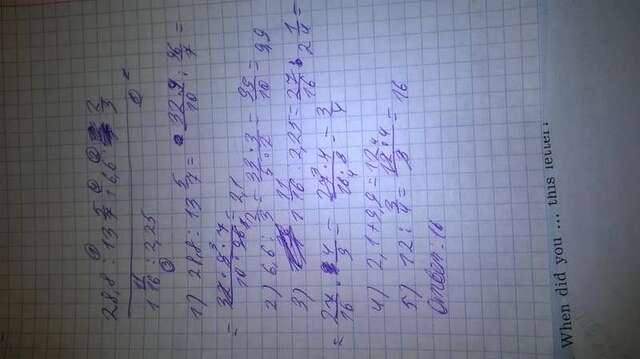 28,8 : 13 5/7 + 6,6 : 2/3
1 11/16 : 2,25 =
1) 28,8 : 13 5/7 = 329/10 : 96/7 =
= 32 · 9 · 7 / 10 · 96 = 2,1
2) 6,6 : 2/3 = 33 · 3 / 5 · 2 = 99/10 = 9,9
3) 1 11/16 : 2,25 = 27/16 : 2 1/4 =
= 27/16 · 4/9 = 27 · 4 / 16 · 9 = 3/4
4) 2,1 + 9,9 = 12
5) 12 : 3/4 = 12 · 4 / 3 = 16
Ответ: 16
When did you ... this letter?